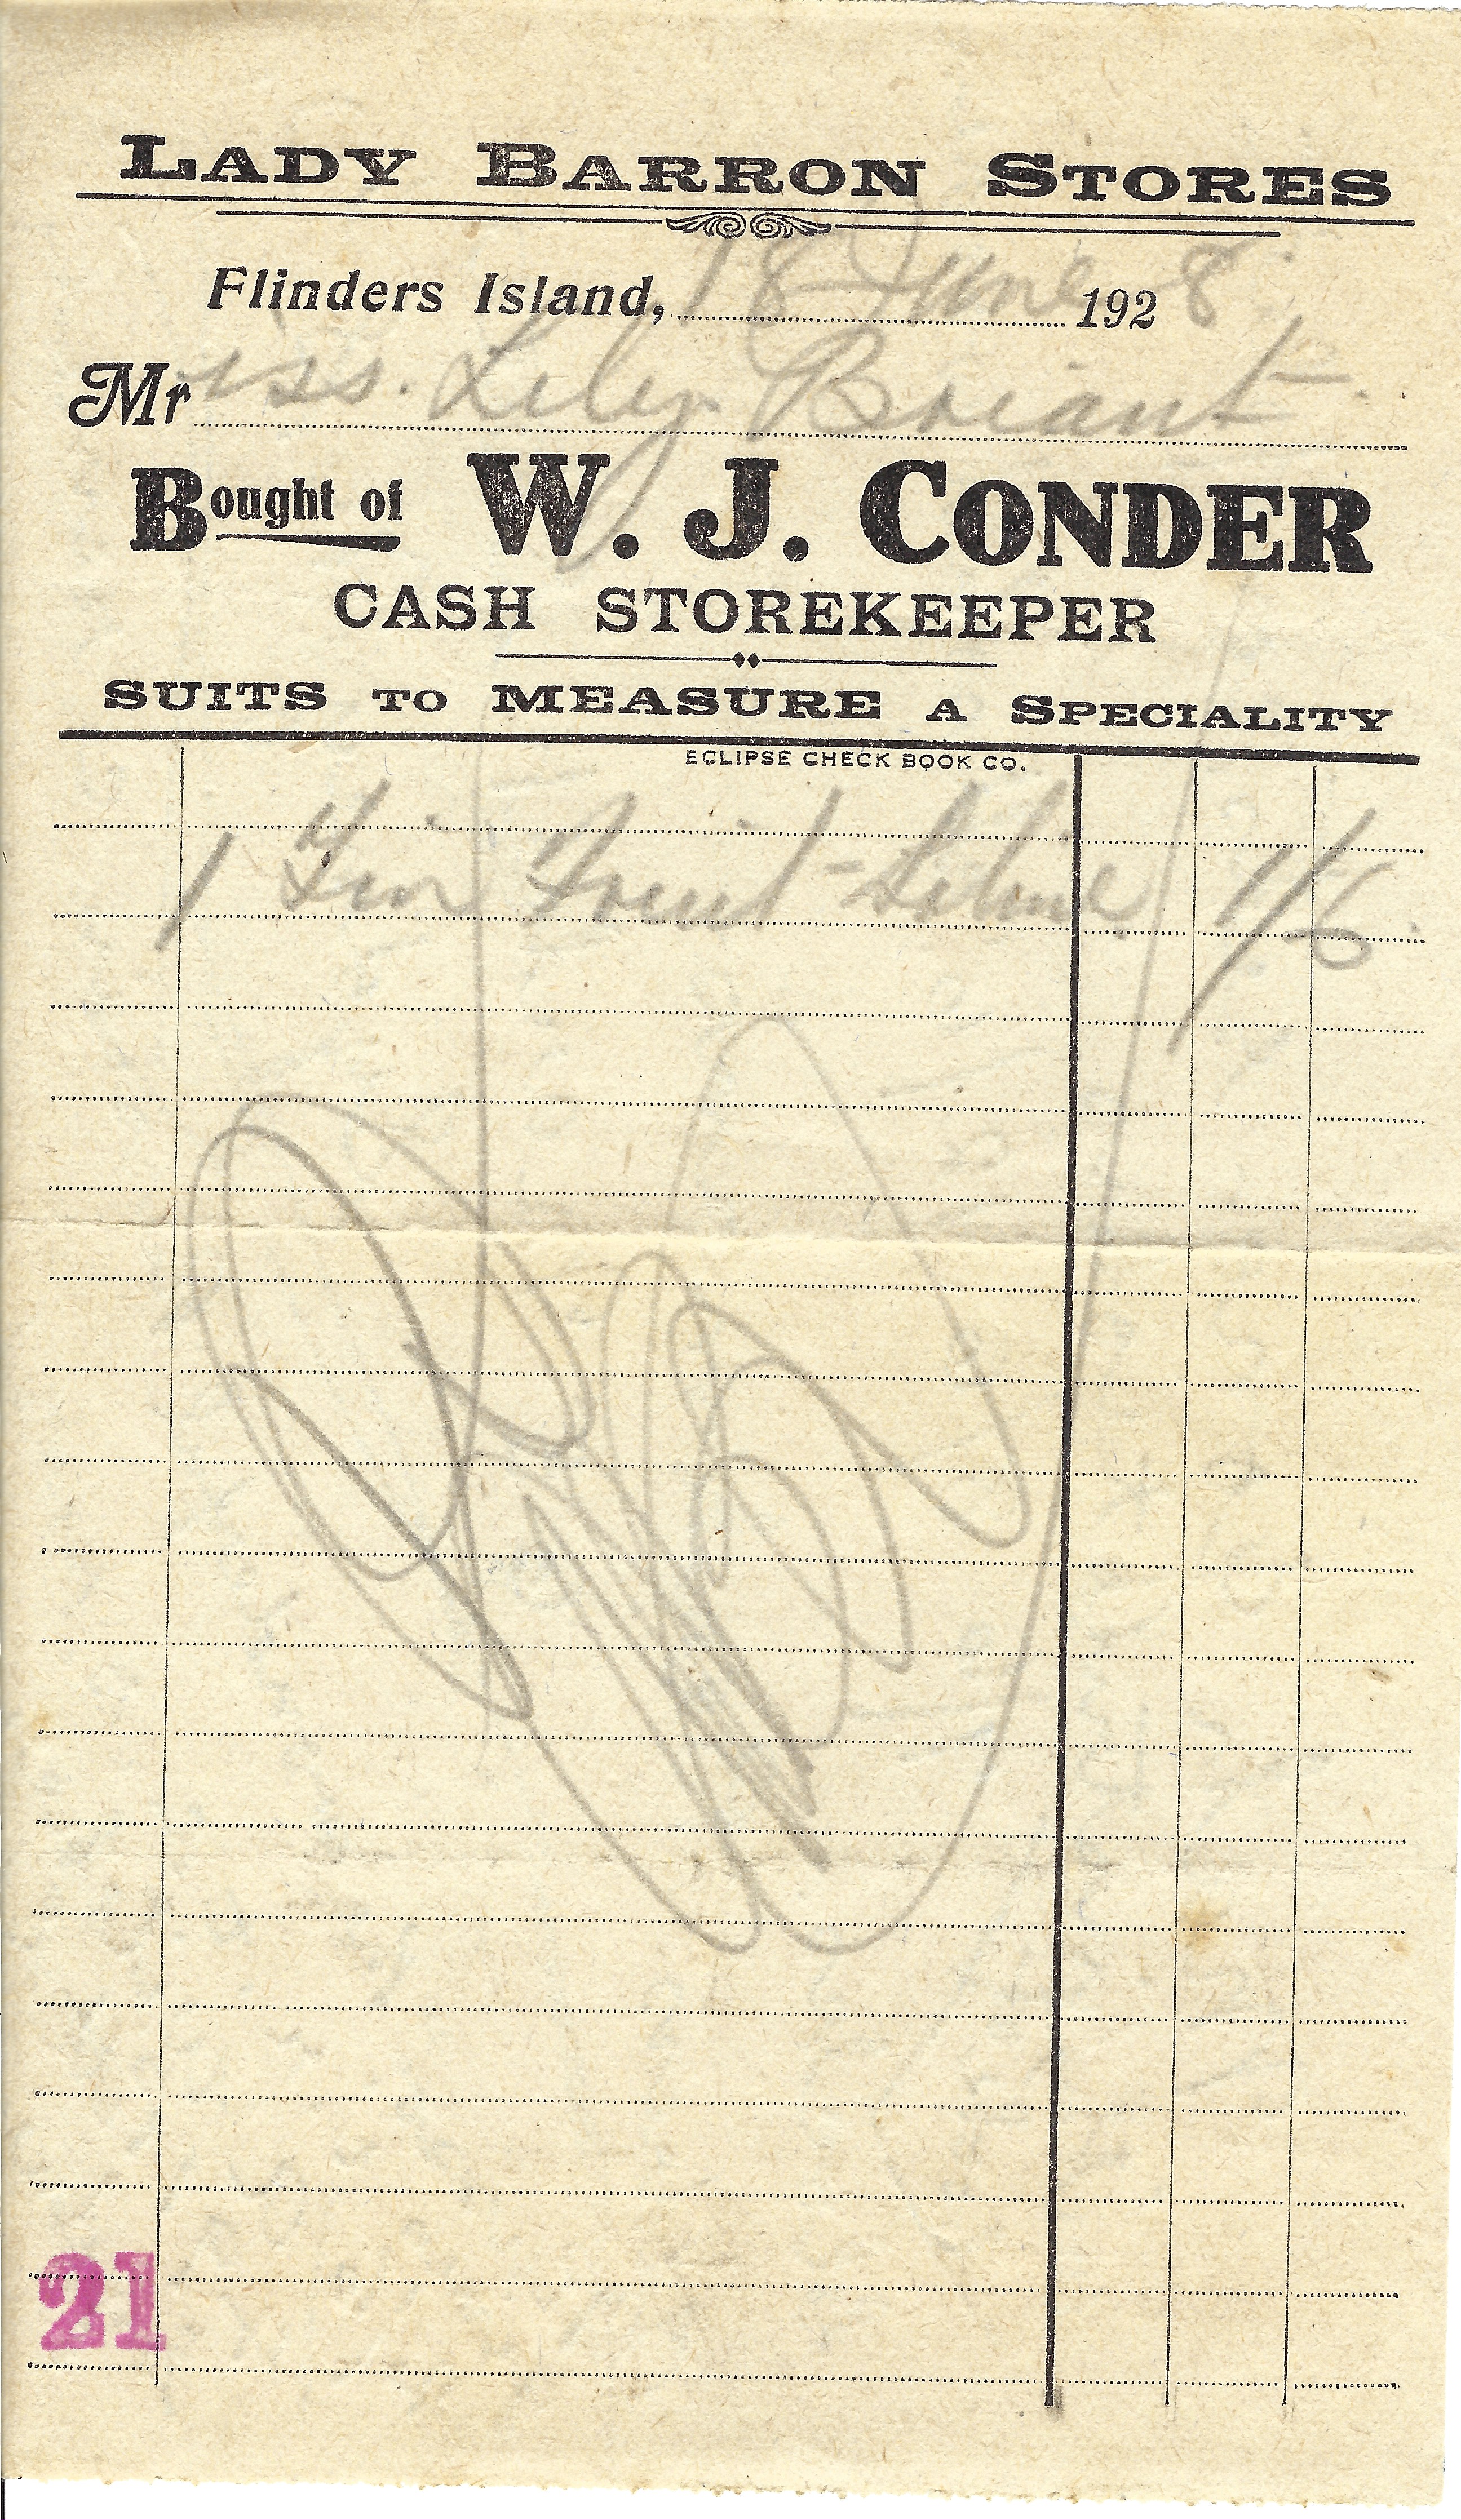 LADY BARRON STORES
Flinders Island, 18 June 1928
Mrss. Lily Briant
Bought of W. J. CONDER
CASH STOREKEEPER
SUITS TO MEASURE A SPECIALITY
ECLIPSE CHECK BOOK CO.
1 Tin Fruit 1/6
21